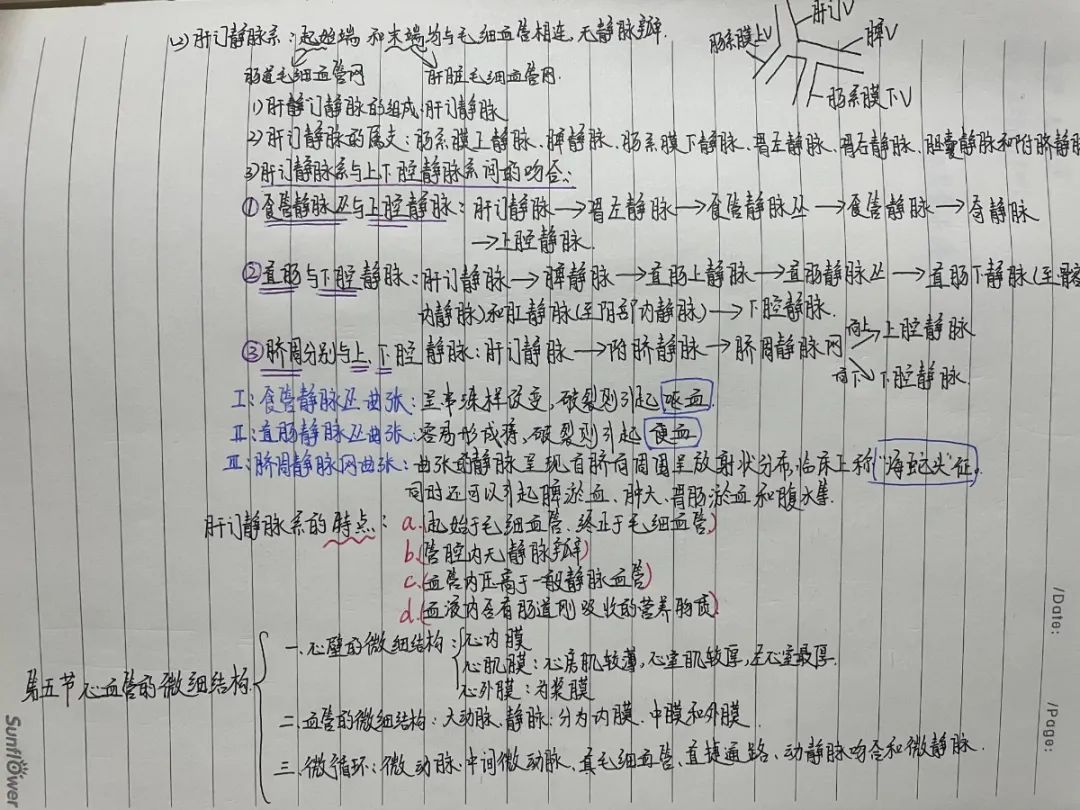 (2)肝门静脉系:起始端和末端均与毛细血管相连,无静脉瓣.
肠道毛细血管网 肝脏毛细血管网.
肠系膜上V 肝门V 脾V 肠系膜下V
1)肝静门静脉的组成:肝门静脉
2)肝门静脉的属支:肠系膜上静脉、脾静脉、肠系膜下静脉、胃左静脉、胃右静脉、胆囊静脉和附脐静脉
3)肝门静脉系与上、下腔静脉系间的吻合:
①食管静脉丛与上腔静脉:肝门静脉→胃左静脉→食管静脉丛→食管静脉→奇静脉
→上腔静脉.
②直肠与下腔静脉:肝门静脉→脾静脉→直肠上静脉→直肠静脉丛→直肠下静脉(至髂
内静脉)和肛静脉(至阴部内静脉)→下腔静脉.
③脐周分别与上、下腔静脉:肝门静脉→附脐静脉→脐周静脉网 向上→上腔静脉
向下↘下腔静脉.
Ⅰ:食管静脉丛曲张:呈串珠样改变,破裂则引起呕血.
Ⅱ:直肠静脉丛曲张:容易形成痔,破裂则引起便血
Ⅲ:脐周静脉网曲张:曲张的静脉呈现自脐向周围呈放射状分布,临床上称"海蛇头"征.
同时还可以引起脾淤血、肿大、胃肠淤血和腹水等.
肝门静脉系的特点:a.(起始于毛细血管、终止于毛细血管)
b.(管腔内无静脉瓣)
c.(血管内压高于一般静脉血管)
d.(血液内含有肠道刚吸收的营养物质)
第五节 心血管的微细结构.
一.心壁的微细结构:心内膜
心肌膜:心房肌较薄,心室肌较厚,左心室最厚.
心外膜:为浆膜
二.血管的微细结构:大动脉、静脉:分为内膜、中膜和外膜
三.微循环:微动脉、中间微动脉、真毛细血管、直捷通路、动静脉吻合和微静脉.
/Date:
/Page:
Sunflower